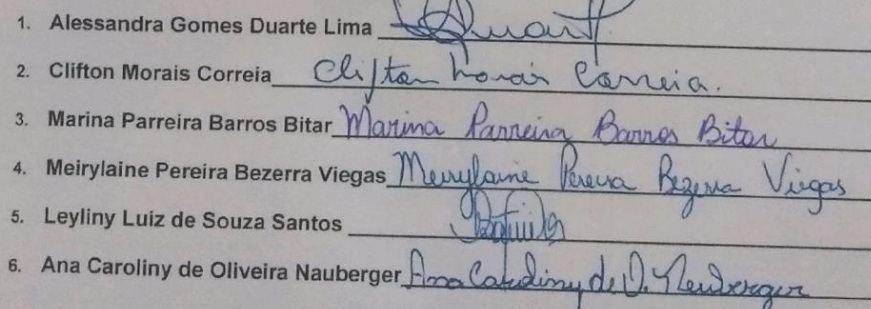 1. Alessandra Gomes Duarte Lima Duart
2. Clifton Morais Correia Clifton Morais Correia.
3. Marina Parreira Barros Bitar Marina Parreira Barros Bitar
4. Meirylaine Pereira Bezerra Viegas Meirylaine Pereira Bezerra Viegas
5. Leyliny Luiz de Souza Santos
6. Ana Caroliny de Oliveira Nauberger Ana Caroliny de O. Neuberger